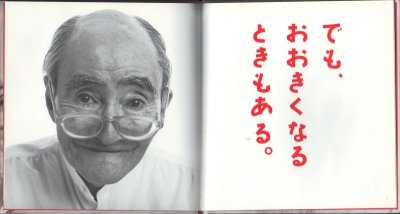 でも、
おおきくなる
ときもある。